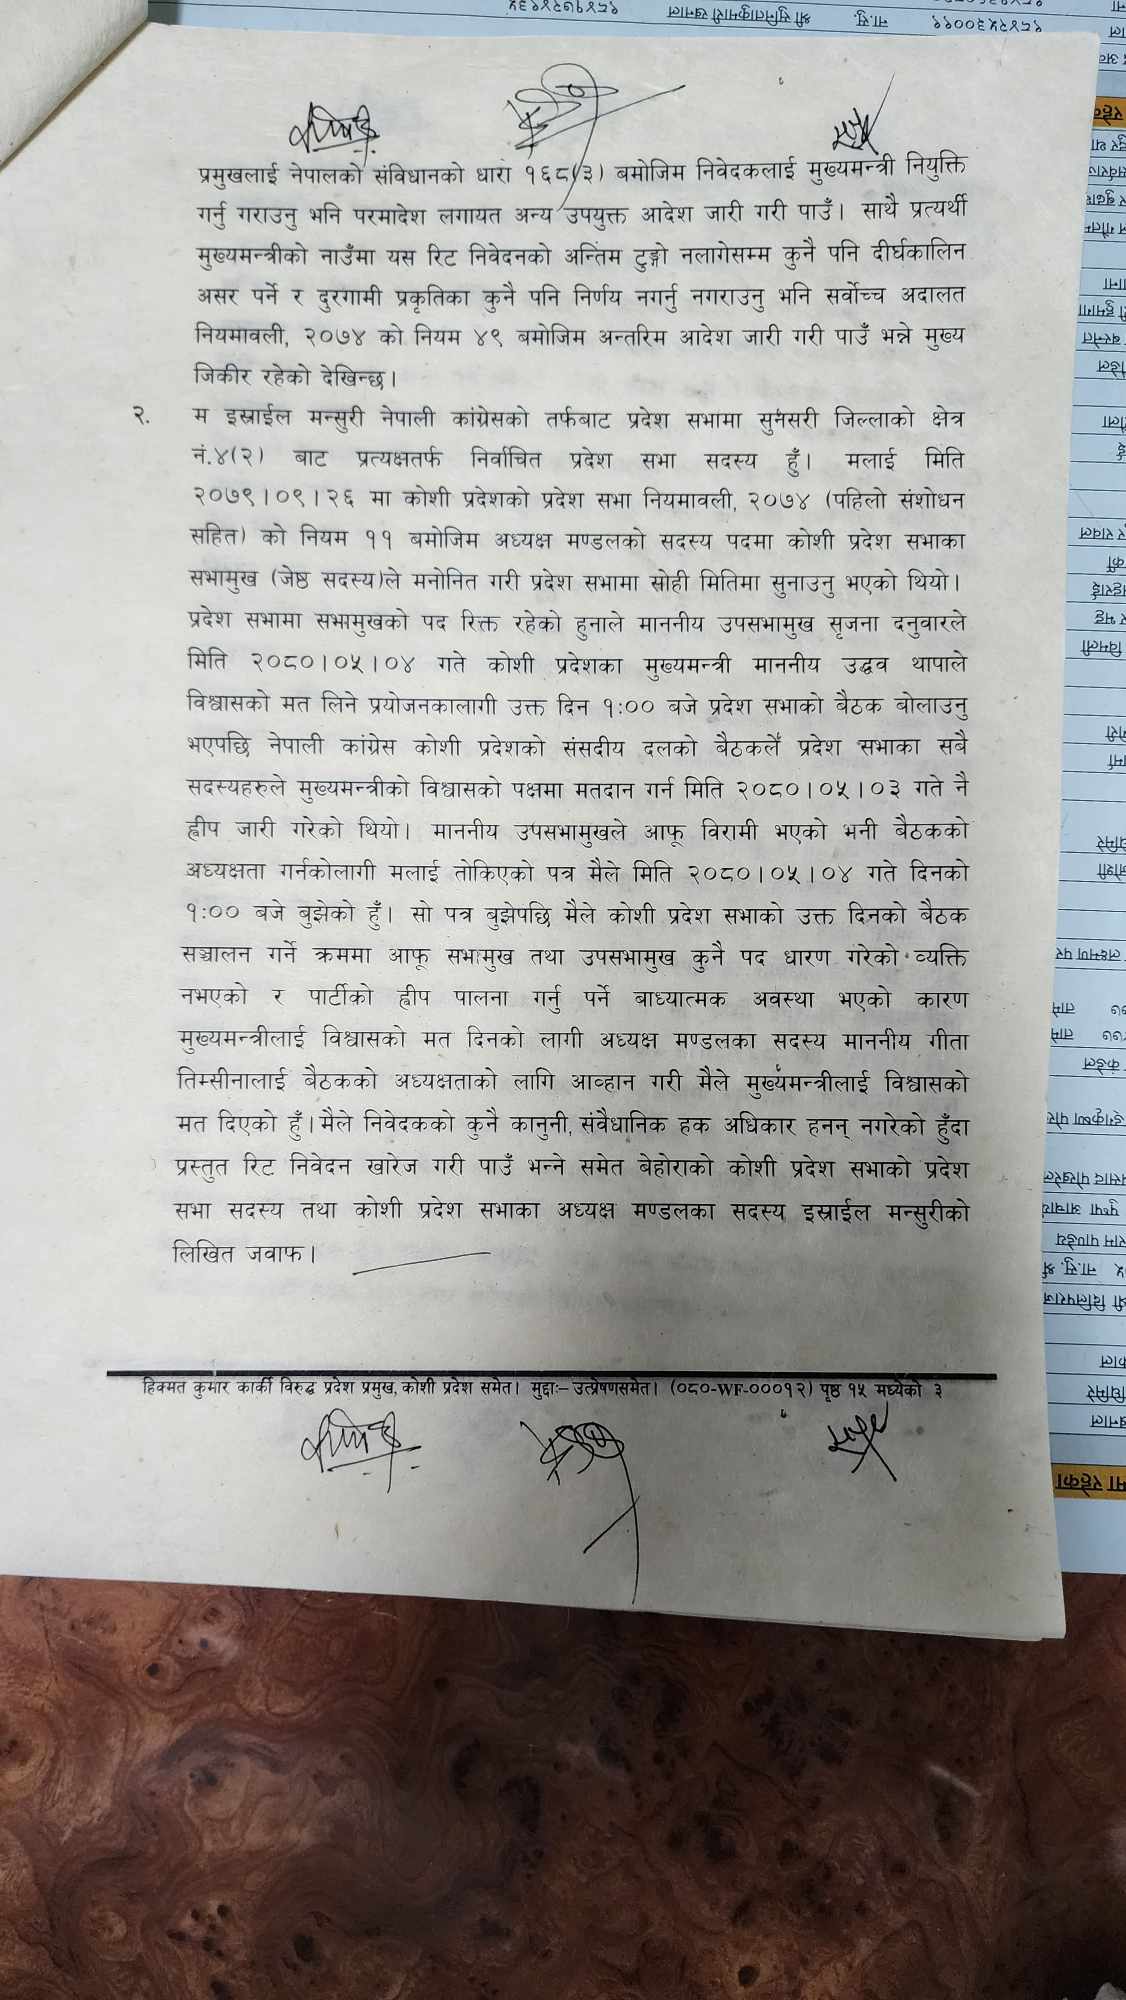 प्रमुखलाई नेपालको संविधानको धारा १६८(३) बमोजिम निवेदकलाई मुख्यमन्त्री नियुक्ति
गर्नु गराउनु भनि परमादेश लगायत अन्य उपयुक्त आदेश जारी गरी पाउँ। साथै प्रत्यर्थी
मुख्यमन्त्रीको नाउँमा यस रिट निवेदनको अन्तिम टुङ्गो नलागेसम्म कुनै पनि दीर्घकालिन
असर पर्ने र दुरगामी प्रकृतिका कुनै पनि निर्णय नगर्नु नगराउनु भनि सर्वोच्च अदालत
नियमावली, २०७४ को नियम ४९ बमोजिम अन्तरिम आदेश जारी गरी पाउँ भन्ने मुख्य
जिकीर रहेको देखिन्छ।
२. म इस्राईल मन्सुरी नेपाली कांग्रेसको तर्फबाट प्रदेश सभामा सुनसरी जिल्लाको क्षेत्र
नं.४(२) बाट प्रत्यक्षतर्फ निर्वाचित प्रदेश सभा सदस्य हुँ। मलाई मिति
२०७९।०९।२६ मा कोशी प्रदेशको प्रदेश सभा नियमावली, २०७४ (पहिलो संशोधन
सहित) को नियम ११ बमोजिम अध्यक्ष मण्डलको सदस्य पदमा कोशी प्रदेश सभाका
सभामुख (जेष्ठ सदस्य)ले मनोनित गरी प्रदेश सभामा सोही मितिमा सुनाउनु भएको थियो।
प्रदेश सभामा सभामुखको पद रिक्त रहेको हुनाले माननीय उपसभामुख सृजना दनुवारले
मिति २०८०।०५।०४ गते कोशी प्रदेशका मुख्यमन्त्री माननीय उद्धव थापाले
विश्वासको मत लिने प्रयोजनकालागी उक्त दिन १:०० बजे प्रदेश सभाको बैठक बोलाउनु
भएपछि नेपाली कांग्रेस कोशी प्रदेशको संसदीय दलको बैठकलेँ प्रदेश सभाका सबै
सदस्यहरुले मुख्यमन्त्रीको विश्वासको पक्षमा मतदान गर्न मिति २०८०।०५।०३ गते नै
ह्वीप जारी गरेको थियो। माननीय उपसभामुखले आफू विरामी भएको भनी बैठकको
अध्यक्षता गर्नकोलागी मलाई तोकिएको पत्र मैले मिति २०८०।०५।०४ गते दिनको
१:०० बजे बुझेको हुँ। सो पत्र बुझेपछि मैले कोशी प्रदेश सभाको उक्त दिनको बैठक
सञ्चालन गर्ने क्रममा आफू सभामुख तथा उपसभामुख कुनै पद धारण गरेको व्यक्ति
नभएको र पार्टीको ह्वीप पालना गर्नु पर्ने बाध्यात्मक अवस्था भएको कारण
मुख्यमन्त्रीलाई विश्वासको मत दिनको लागी अध्यक्ष मण्डलका सदस्य माननीय गीता
तिम्सीनालाई बैठकको अध्यक्षताको लागि आव्हान गरी मैले मुख्यमन्त्रीलाई विश्वासको
मत दिएको हुँ।मैले निवेदकको कुनै कानुनी, संवैधानिक हक अधिकार हनन् नगरेको हुँदा
प्रस्तुत रिट निवेदन खारेज गरी पाउँ भन्ने समेत बेहोराको कोशी प्रदेश सभाको प्रदेश
सभा सदस्य तथा कोशी प्रदेश सभाका अध्यक्ष मण्डलका सदस्य इस्राईल मन्सुरीको
लिखित जवाफ।
हिक्मत कुमार कार्की विरुद्ध प्रदेश प्रमुख, कोशी प्रदेश समेत। मुद्दाः– उत्प्रेषणसमेत। (०८०-WF-०००१२) पृष्ठ १५ मध्येको ३